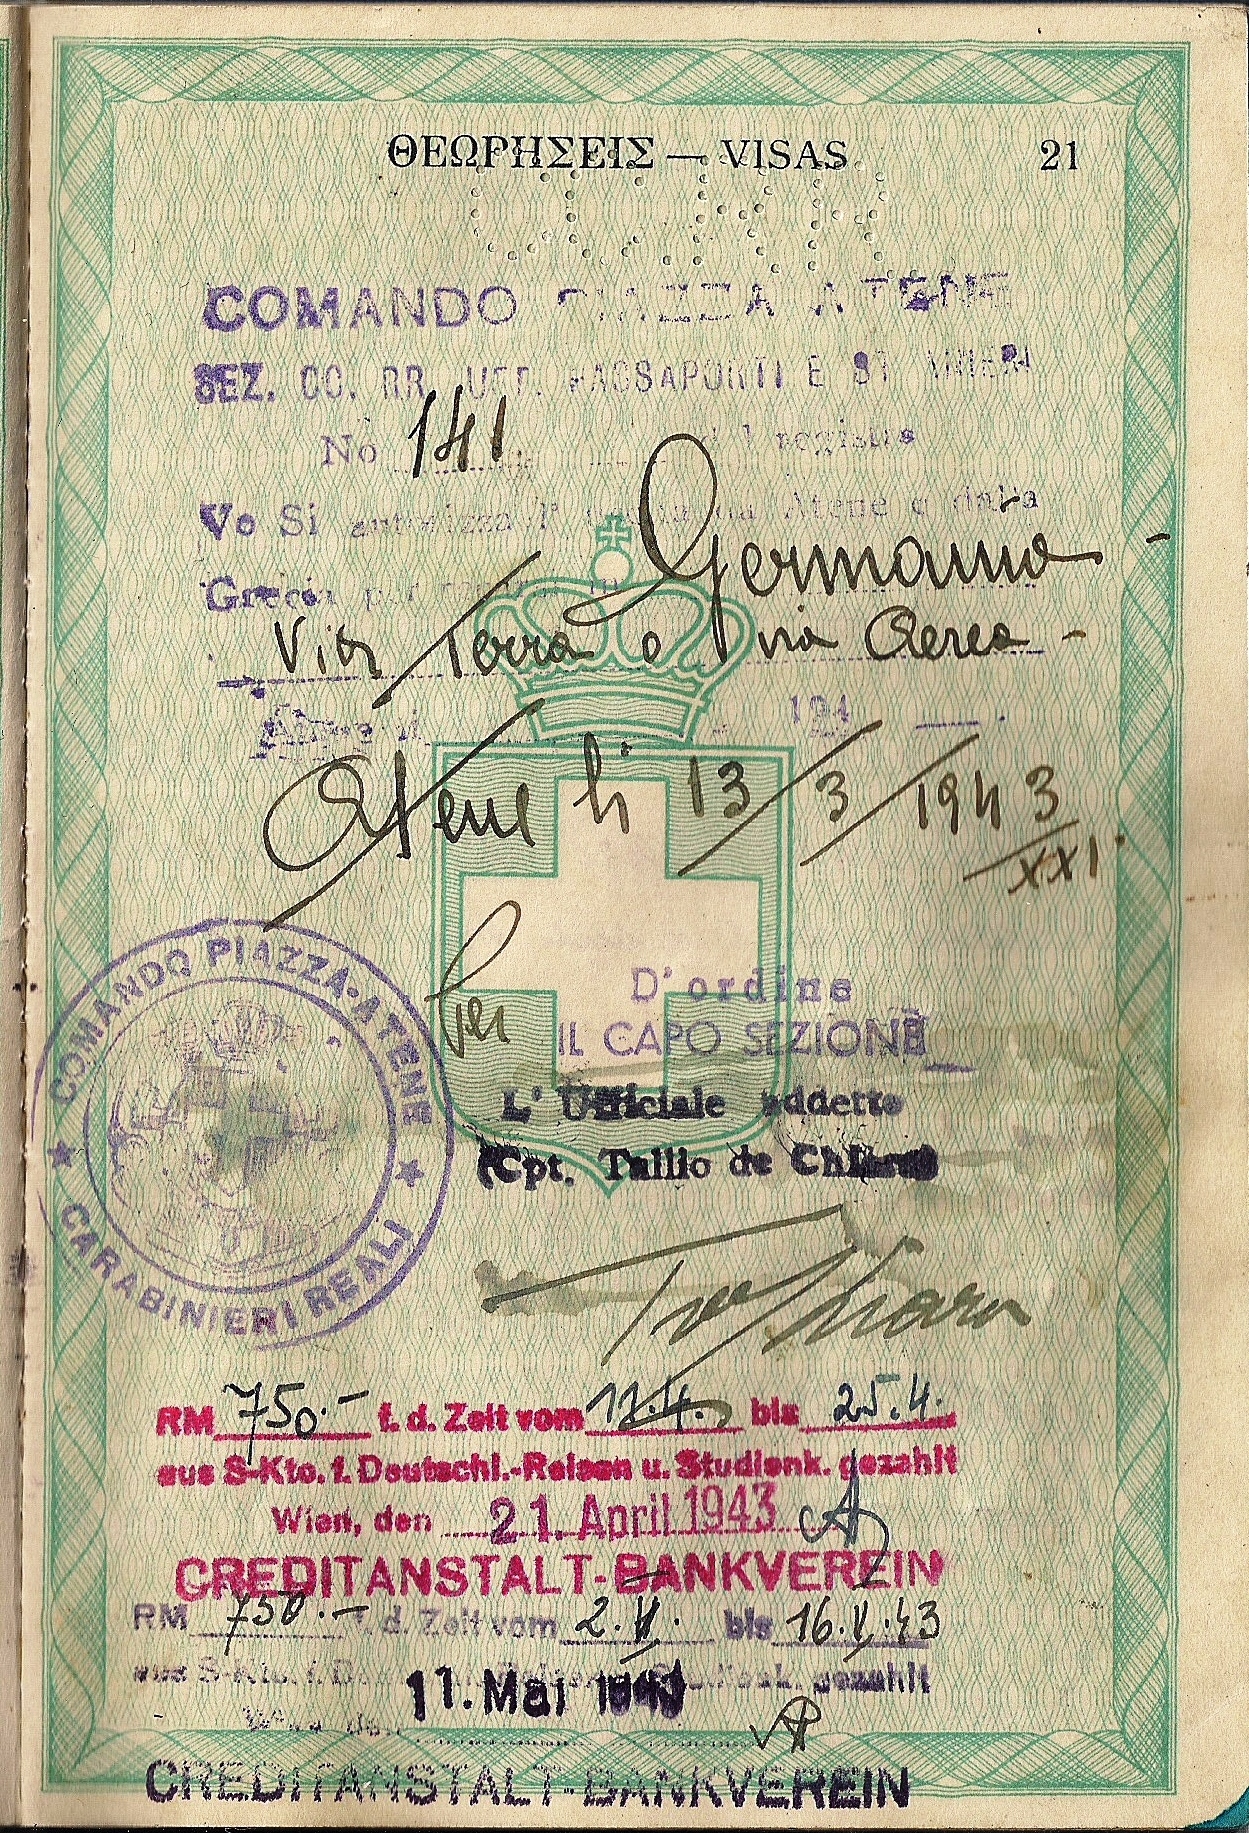 ΘΕΩΡΗΣΕΙΣ — VISAS 21
COMANDO PIAZZA ATENE
SEZ. CC. RR. UFF. PASSAPORTI E
No 141 registro
Vo Si autorizza Atene e dalla
Grecia per Germania -
Via Terra o via Aerea -
Atene li 194
Atene li 13/3/1943
XXI
COMANDO PIAZZA-ATENE
CARABINIERI REALI
Per D'ordine
IL CAPO SEZIONE
L' Ufficiale addetto
(Cpt. Tullio de
RM 750.- f. d. Zeit vom bis 25.4.
aus S-Kto. f. Deutschl.-Reisen u. Studienk. gezahlt
Wien, den 21. April 1943
CREDITANSTALT-BANKVEREIN
RM 750.- f. d. Zeit vom 2.V. bis 16.V.43
aus S-Kto. f. gezahlt
11. Mai 1943
CREDITANSTALT-BANKVEREIN